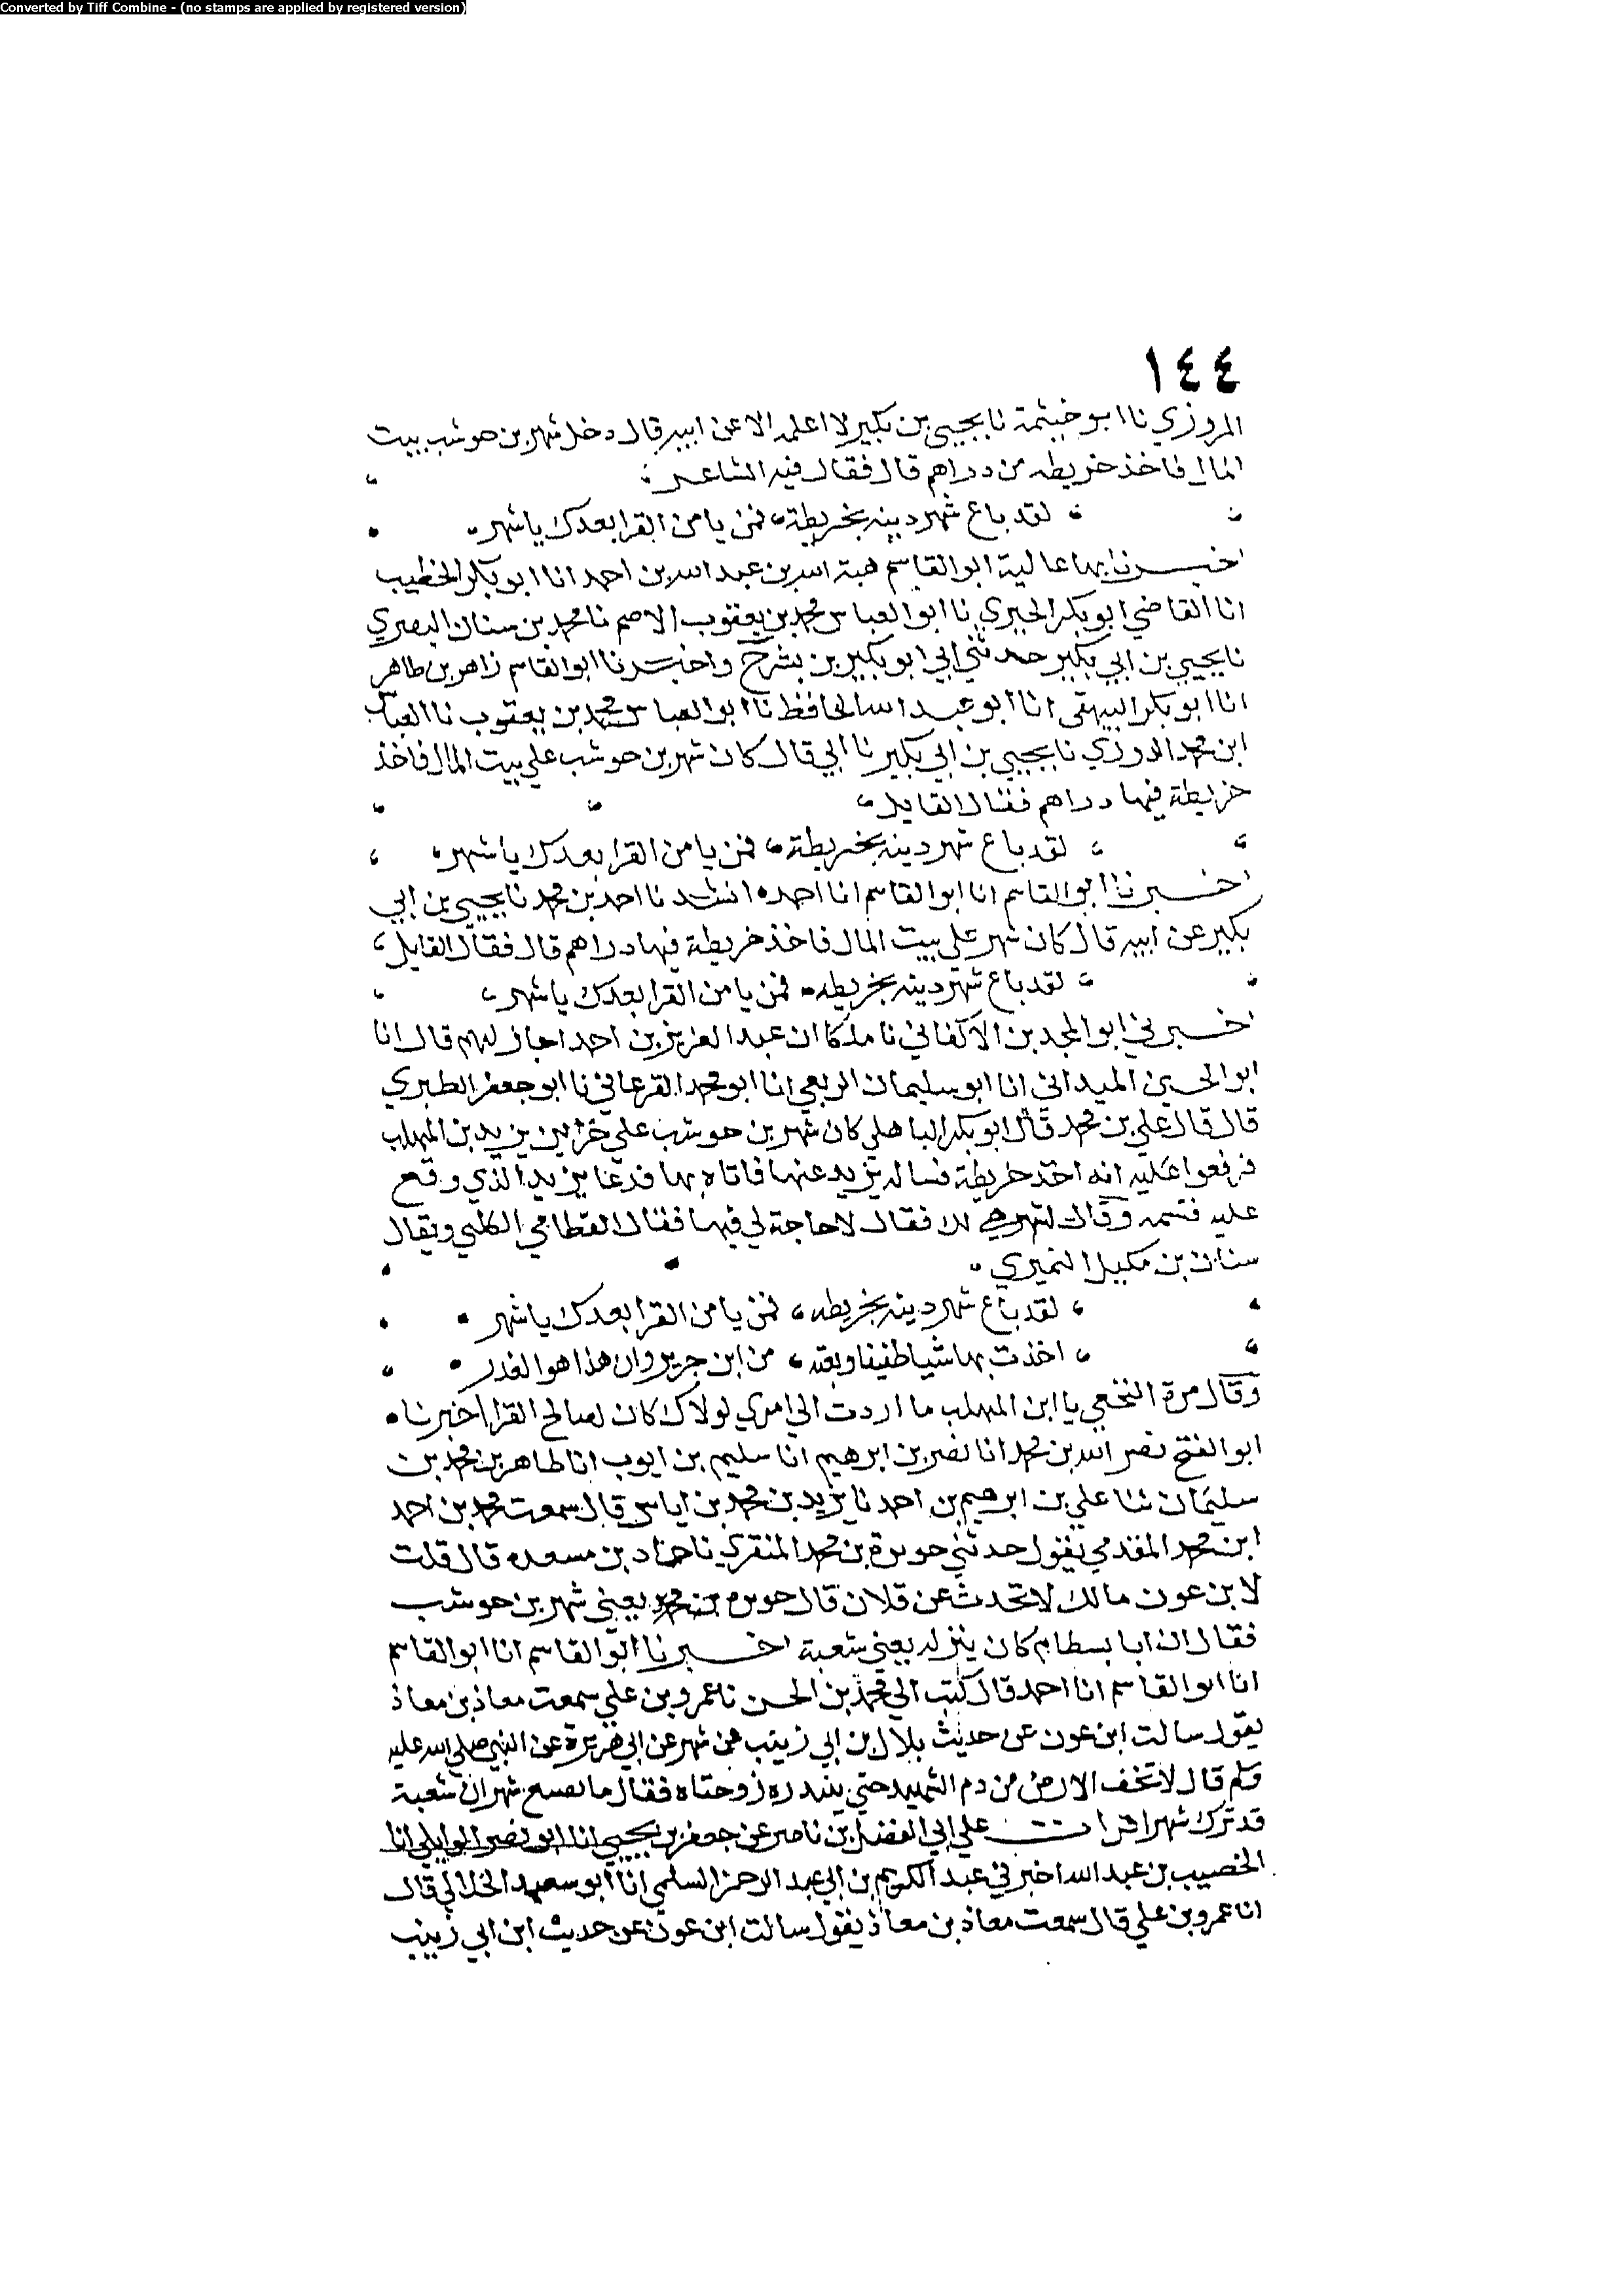 Converted by Tiff Combine - (no stamps are applied by registered version)
١٤٤
المروزي نا ابو خيثمة نا يحيى بن بكير لا اعلمه الا عن ابيه قال دخل شهر بن حوشب بيت
المال فاخذ خريطه من دراهم قال فقال فيه الشاعر
لقد باع شهر دينه بخريطة فمن يامن القرا بعدك يا شهر
اخبرنا بها عالية ابو القاسم هبة الله بن عبد الله بن احمد انا ابو بكر الخطيب
انا القاضي ابو بكر الحيري نا ابو العباس محمد بن يعقوب الاصم نا محمد بن سنان البصري
نا يحيى بن ابي بكير حدثني ابي ابو بكير بن بشر ح واخبرنا ابو القاسم زاهر بن طاهر
انا ابو بكر البيهقي انا ابو عبد الله الحافظ نا ابو العباس محمد بن يعقوب نا العباس
ابن محمد الدوري نا يحيى بن ابي بكير نا ابي قال كان شهر بن حوشب علي بيت المال فاخذ
خريطة فيها دراهم فقال القايل
لقد باع شهر دينه بخريطة فمن يامن القرا بعدك يا شهر
اخبرنا ابو القاسم انا ابو القاسم انا احمد نا احمد بن محمد نا يحيى بن ابي
بكير عن ابيه قال كان شهر علي بيت المال فاخذ خريطة فيها دراهم قال فقال القايل
لقد باع شهر دينه بخريطه فمن يامن القرا بعدك يا شهر
اخبرني ابو المجد بن الاكفاني نا عبد العزيز بن احمد اجاز لهم قال انا
ابو الحسين الميداني انا ابو سليمان الربعي انا ابو محمد الفرغاني نا ابو جعفر الطبري
قال قال علي بن محمد قال ابو بكر الباهلي كان شهر بن حوشب علي خزاين يزيد بن المهلب
فرفعوا عليه انه اخذ خريطة فساله يزيد عنها فاتاه بها فدعا يزيد الذي رفع
عليه فشتمه وقال لشهر هي لك فقال لا حاجة لي فيها فقال القطامي الكلبي ويقال
سنان بن مكيل النميري
لقد باع شهر دينه بخريطه فمن يامن القرا بعدك يا شهر
اخذت بها شيا طفيفا وبعته من ابن جرير وان هذا هو الغدر
وقال مرة النخعي يا ابن المهلب ما اردت الي امري لولاك كان لصالح القرا اخبرناه
ابو الفتح نصر الله بن محمد انا نصر بن ابرهيم انا سليم بن ايوب انا طاهر بن محمد بن
سليمان ثنا علي بن ابرهيم بن احمد نا يزيد بن محمد بن اياس قال سمعت محمد بن احمد
ابن محمد المقدمي يقول حدثني حوثرة بن محمد المنقري نا حماد بن مسعده قال قلت
لابن عون مالك لا تحدث عن فلان قال حوثره بن محمد يعني شهر بن حوشب
فقال ان ابا بسطام كان ينزله يعني شعبة اخبرنا ابو القاسم انا ابو القاسم
انا ابو القاسم انا احمد قال كتب الي محمد بن الحسن نا عمرو بن علي سمعت معاذ بن معاذ
يقول سالت ابن عون عن حديث بلال بن ابي زينب عن شهر عن ابي هريرة عن النبي صلى الله عليه
وسلم قال لا تجف الارض من دم الشهيد حتى يبتدره زوجتاه فقال ما تصنع بشهر ان شعبة
قد ترك شهرا قرات علي ابي الفضل بن ناصر عن جعفر بن يحيى انا ابو نصر الوايلي انا
الخصيب بن عبد الله اخبرني عبد الكريم بن ابي عبد الرحمن السلمي انا ابو سعيد الخلالي قال
انا عمرو بن علي قال سمعت معاذ بن معاذ يقول سالت ابن عون عن حديث ابن ابي زينب